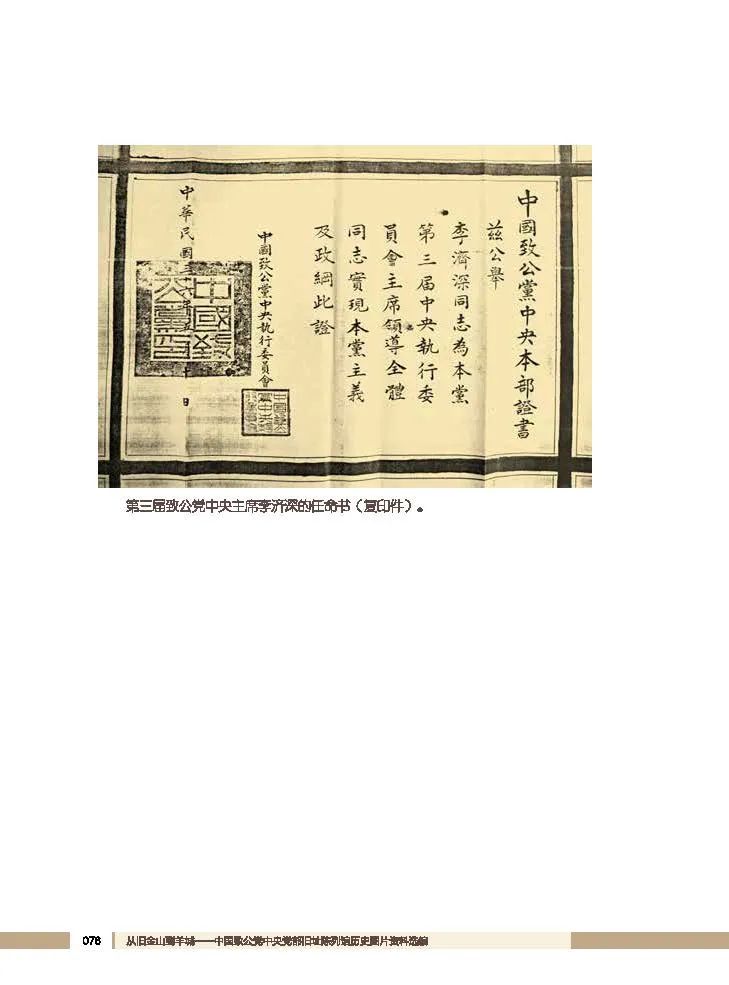 中國致公黨中央本部證書
茲公舉
李濟深同志為本黨
第三屆中央執行委
員會主席領導全體
同志實現本黨主義
及政綱此證
中國致公黨中央執行委員會
中華民國三十六年五月十日
第三届致公党中央主席李济深的任命书（复印件）。
076
从旧金山到羊城——中国致公党中央党部旧址陈列馆历史图片资料选编